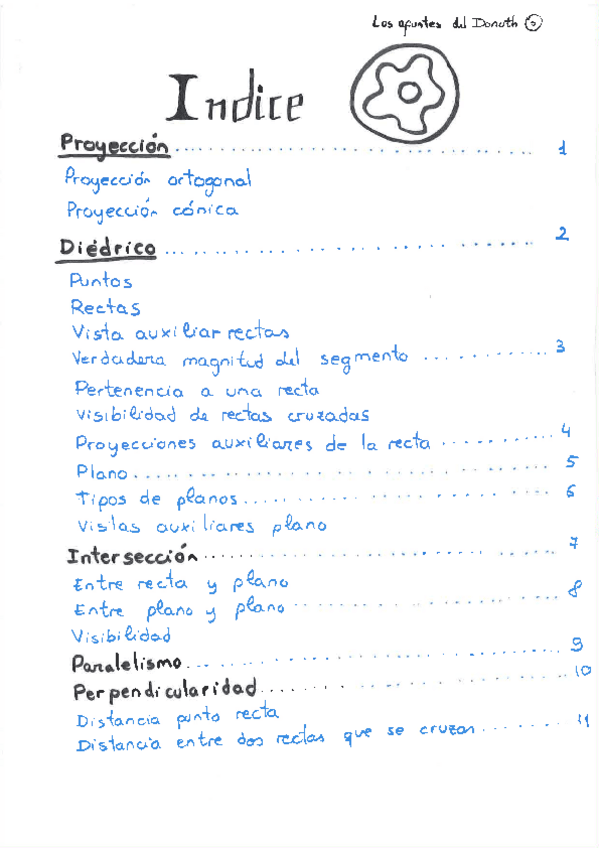 Los apuntes del Donuth
Indice
Proyección .................................... 1
Proyección ortogonal
Proyección cónica
Diédrico .................................... 2
Puntos
Rectas
Vista auxiliar rectas
Verdadera magnitud del segmento ............. 3
Pertenencia a una recta
Visibilidad de rectas cruzadas
Proyecciones auxiliares de la recta ........... 4
Plano .................................... 5
Tipos de planos .............................. 6
Vistas auxiliares plano
Intersección .................................. 7
Entre recta y plano
Entre plano y plano ......................... 8
Visibilidad
Paralelismo .................................. 9
Perpendicularidad ........................... 10
Distancia punto recta
Distancia entre dos rectas que se cruzan ........ 11